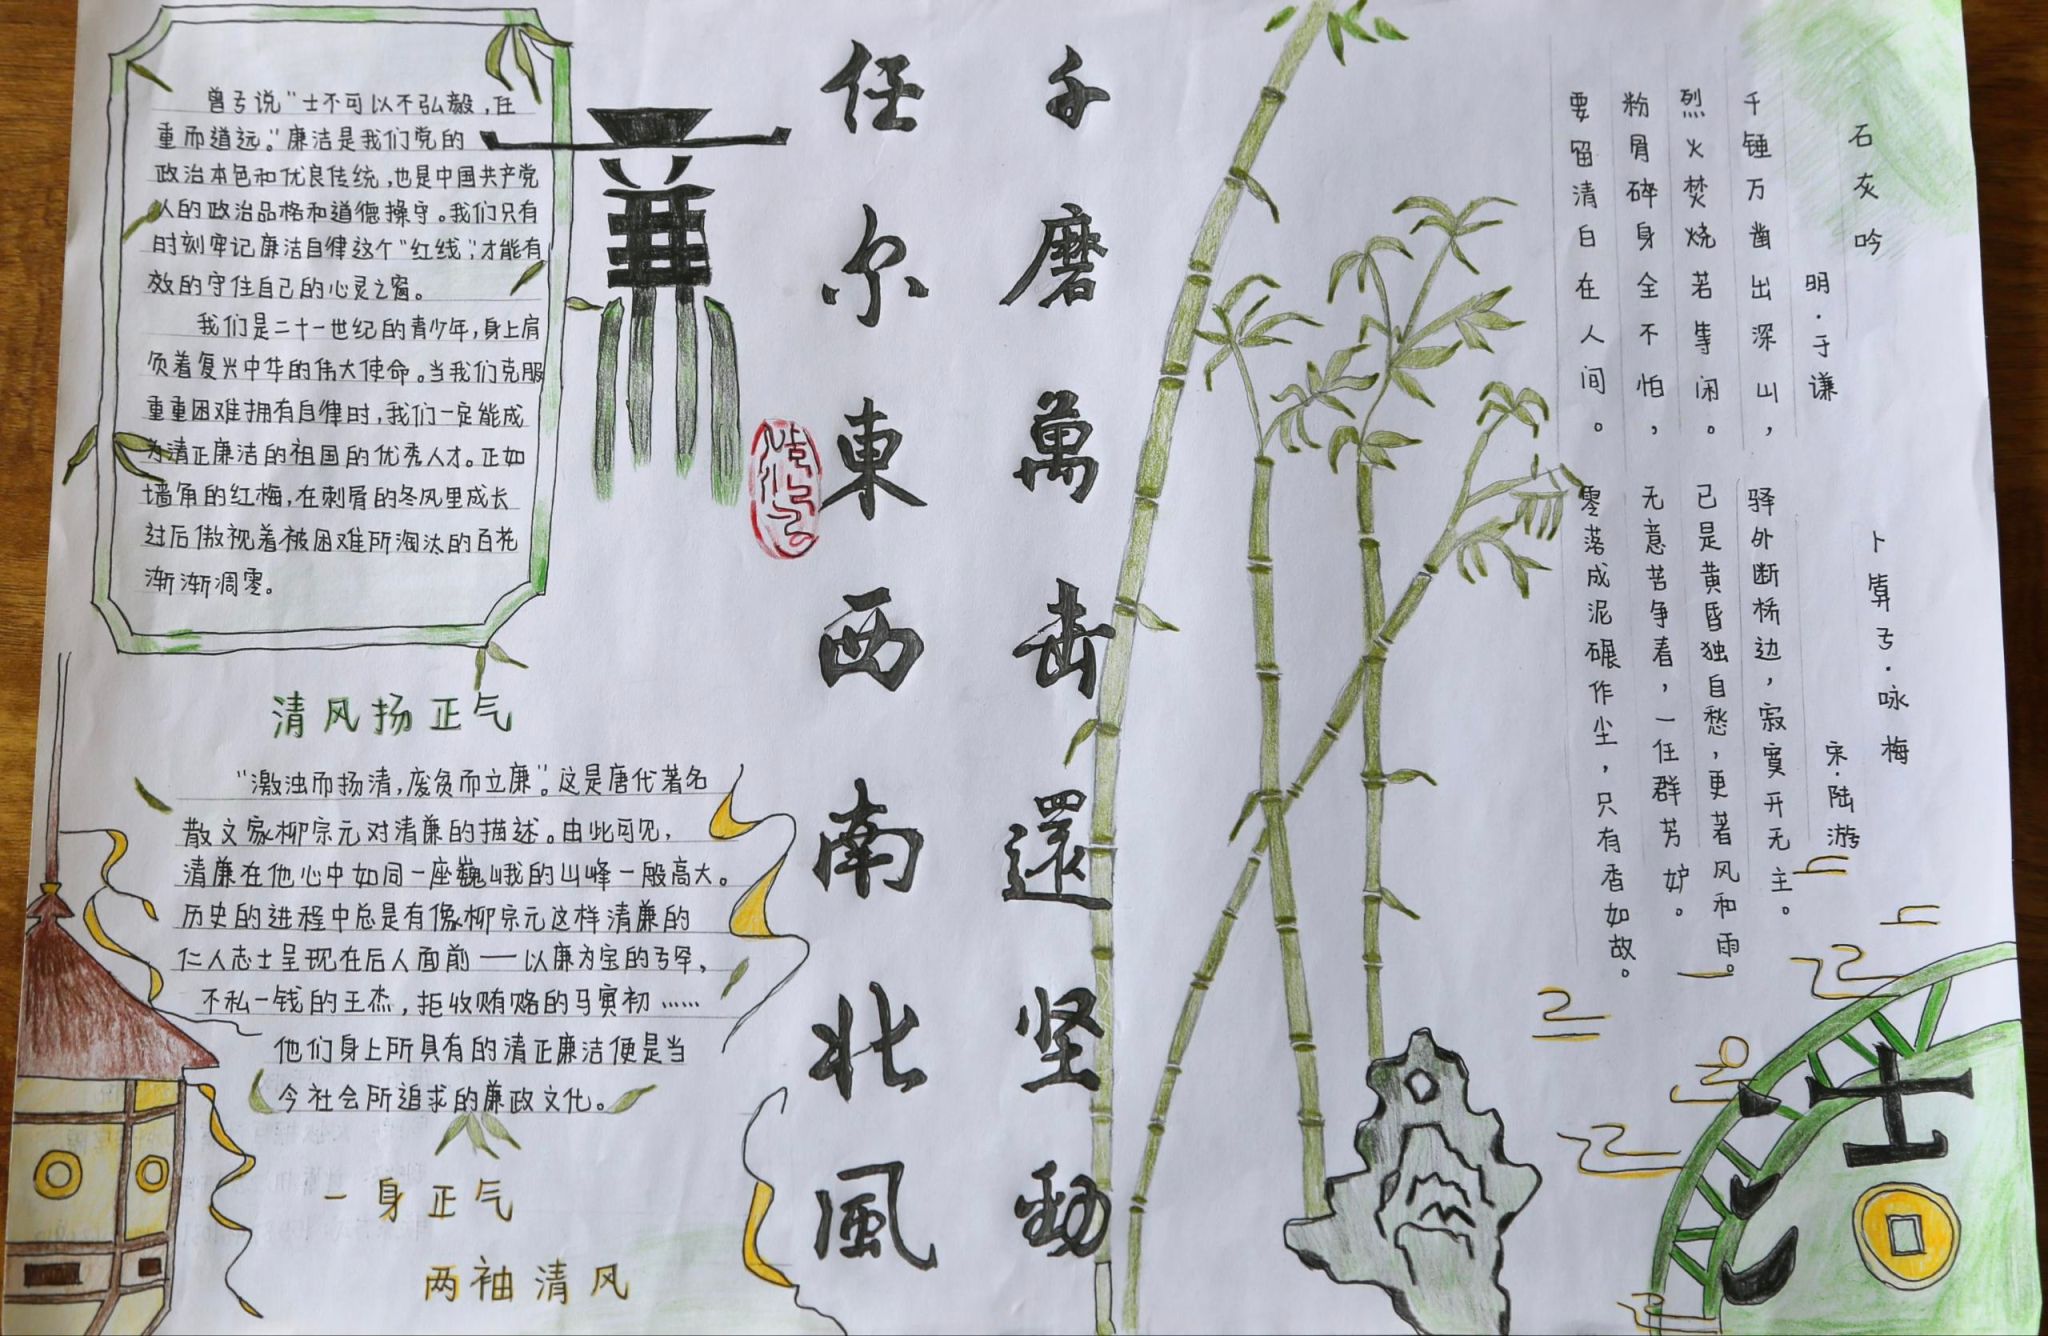 曾子说“士不可以不弘毅,任
重而道远。”廉洁是我们党的
政治本色和优良传统,也是中国共产党
人的政治品格和道德操守。我们只有
时刻牢记廉洁自律这个“红线”,才能有
效的守住自己的心灵之窗。
我们是二十一世纪的青少年,身上肩
负着复兴中华的伟大使命。当我们克服
重重困难拥有自律时,我们一定能成
为清正廉洁的祖国的优秀人才。正如
墙角的红梅,在刺骨的冬风里成长
过后傲视着被困难所淘汰的百花
渐渐凋零。
清风扬正气
“激浊而扬清,废贪而立廉”。这是唐代著名
散文家柳宗元对清廉的描述。由此可见,
清廉在他心中如同一座巍峨的山峰一般高大。
历史的进程中总是有像柳宗元这样清廉的
仁人志士呈现在后人面前——以廉为宝的子罕,
不私一钱的王杰,拒收贿赂的马寅初……
他们身上所具有的清正廉洁便是当
今社会所追求的廉政文化。
一身正气
两袖清风
千磨萬击還坚動
任尔東西南北風
石灰吟
明·于谦
千锤万凿出深山,
烈火焚烧若等闲。
粉骨碎身全不怕,
要留清白在人间。
卜算子·咏梅
宋·陆游
驿外断桥边,寂寞开无主。
已是黄昏独自愁,更著风和雨。
无意苦争春,一任群芳妒。
零落成泥碾作尘,只有香如故。